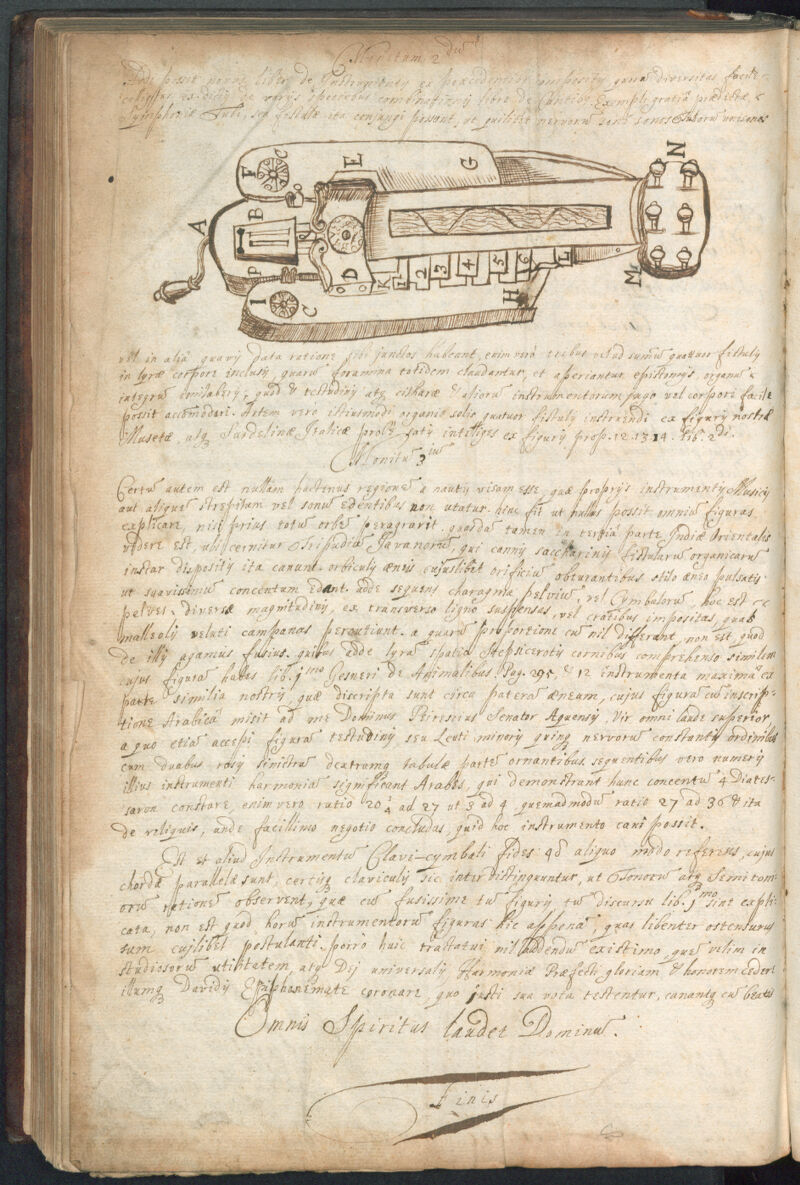 Monitum 2dum
Posse novus liber de Instrumentis ex præcedentibus compositis quorum diversitas facile
de varijs speciebus combinationis libro de Cantibus. Exempli gratia prædictæ
Symphoniæ Tubi, seu fistulæ ita conjungi possunt, ut quilibet nervorum sonus Tuborum unisonos
A
F
C
B
E
G
N
P
D
K
1
2
3
4
5
6
L
I
C
H
M
vel in aliâ quavis data ratione sibi junctos habeant, enim vero tribus vel ad sumũ quatuor fistulis
in lyræ corpore inclusis, quarũ foramina totidem claudantur, et aperiantur epistomijs, organũ
integrũ quod & testudinis atq citharæ & aliorũ instrumentorum jugo vel corpore facile
possit accommodari. Artem vero istiusmodi organo solis quatuor fistulis instruendi ex figuris nostræ
Musetæ, atq Surdelinæ Italicæ intelliges ex figuris prop. 12. 13. 14. lib. 2di.
Monitũ 3ium
Certũ autem est nullam hactenus regionẽ a nautis visam esse, quæ proprijs instrumentis Musicis
aut aliquẽ strepitum vel sonũ edentibus non utatur. hinc fit ut nullus possit omniũ figuras
explicare, nisi prius totũ orbẽ peragrarit. quasdã tamen in tertiâ parte Indiæ Orientalis
videre est, ubi cernitur Tripudiũ Javanorũ, qui cannis saccharinis fistularũ organicarũ
instar dispositis ita canunt. orbiculis æneis cujuslibet orificiũ obturantibus stilo æneo pulsatis
ut suavissimũ concentum edant. adde sequens charagma pelviũ vel Cymbalorũ, hoc est
pelves diversæ magnitudinis, ex transverso ligno suspensas, vel cratibus impositas, quas
malleolis veluti campanas percutiunt. a quarũ proportione cũ nil differant, non est, quod
de illis agamus fusius. quibus adde lyrã spatio Hepsicerotis cornibus comprehenso similem
cujus figurã habes lib. 1mo Gesneri de Animalibus. Pag. 295, & 12 instrumenta maximâ ex
parte similia nostris, quæ discripta sunt circa paterã æneum, cujus figurã cũ inscrip-
tione Arabicâ misit ad me Dominus Peirescius Senator Aquensis, Vir omni laude superior,
a quo etiã accepi figurã testudinis seu Leuti minoris quinq nervorũ constantis ordinibus
cum duabus rosis sinistrã dextramq tabulæ partẽ ornantibus. sequentibus vero numeris
illius instrumenti harmoniã significant Arabes, qui demonstrant hunc concentũ 4 Diates-
saron constare, enim vero ratio 20¼ ad 27 ut 3 ad 4 quemadmodũ ratio 27 ad 36 & ita
de reliquis, unde facillimo negotio concludas, quid hoc instrumento cani possit.
Est et aliud Instrumentũ Clavi-cymbali fides qd aliquo modo referens, cujus
chordæ parallelæ sunt, certisq claviculis sic inter distinguuntur, ut Tonorũ atq Semitoni-
orũ rationẽ observent, quæ cũ fusissime tũ figuris tũ discursu lib. 1mo sint expli-
cata, non est quod horũ instrumentorũ figuras hic appenã, quas libenter ostensurus
sum cuilibet postulanti. porro huic tractatui nil addendũ existimo quẽ velim in
studiosorũ utilitatem, atq Dei universalis Harmoniæ Præfecti gloriam & honorem cedere
illumq Davidis Epiphonemate coronare, quo justi sua vota testentur, canantq cũ beatis
Omnis Spiritus laudet Dominũ.
Finis